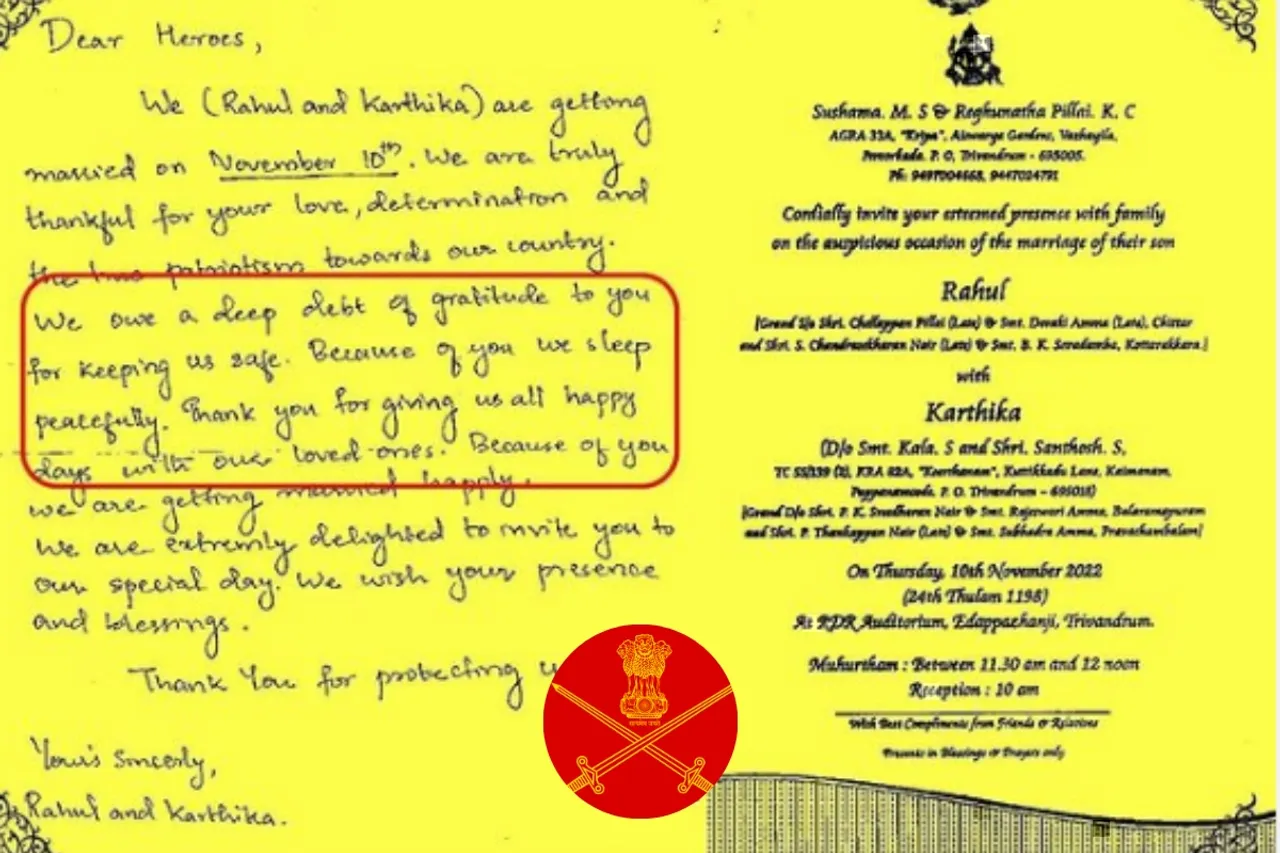 Dear Heroes,
We (Rahul and Karthika) are getting
married on November 10th. We are truly
thankful for your love, determination and
the true patriotism towards our country.
We owe a deep debt of gratitude to you
for keeping us safe. Because of you we sleep
peacefully. Thank you for giving us all happy
days with our loved ones. Because of you
we are getting married happly.
We are extremly delighted to invite you to
our special day. We wish your presence
and blessings.
Thank You for protecting
Your's Sincerly,
Rahul and Karthika.
Sushama. M. S & Reghunatha Pillai. K. C
AGRA 33A, "Kripa", Aiswarya Gardens, Vazhayila,
P. O, Trivandrum - 695005.
Ph: 9447024791
Cordially invite your esteemed presence with family
on the auspicious occasion of the marriage of their son
Rahul
[Grand S/o Shri. Chellappan Pillai (Late) & Smt. Devaki Amma (Late), Chittar
and Shri. S. Chandrasekharan Nair (Late) & Smt. B. K. Kottarakkara.]
with
Karthika
(D/o Smt. Kala. S and Shri. Santhosh. S,
TC 55/139 (2), KRA 82A, Kuttikkadu Lane, Kaimanam,
Pappanamcode. P. O. Trivandrum - 695018)
[Grand D/o Shri. P. K. Sreedharan Nair & Smt. Rajeswari Amma, Balaramapuram
and Shri. P. Thankappan Nair (Late) & Smt. Subhadra Amma, Pravachambalam]
On Thursday, 10th November 2022
(24th Thulam 1198)
At RDR Auditorium, Edappazhanji, Trivandrum.
Muhurtham : Between 11.30 am and 12 noon
Reception : 10 am
With Best Compliments from Friends & Relations
Presents in Blessings & Prayers only